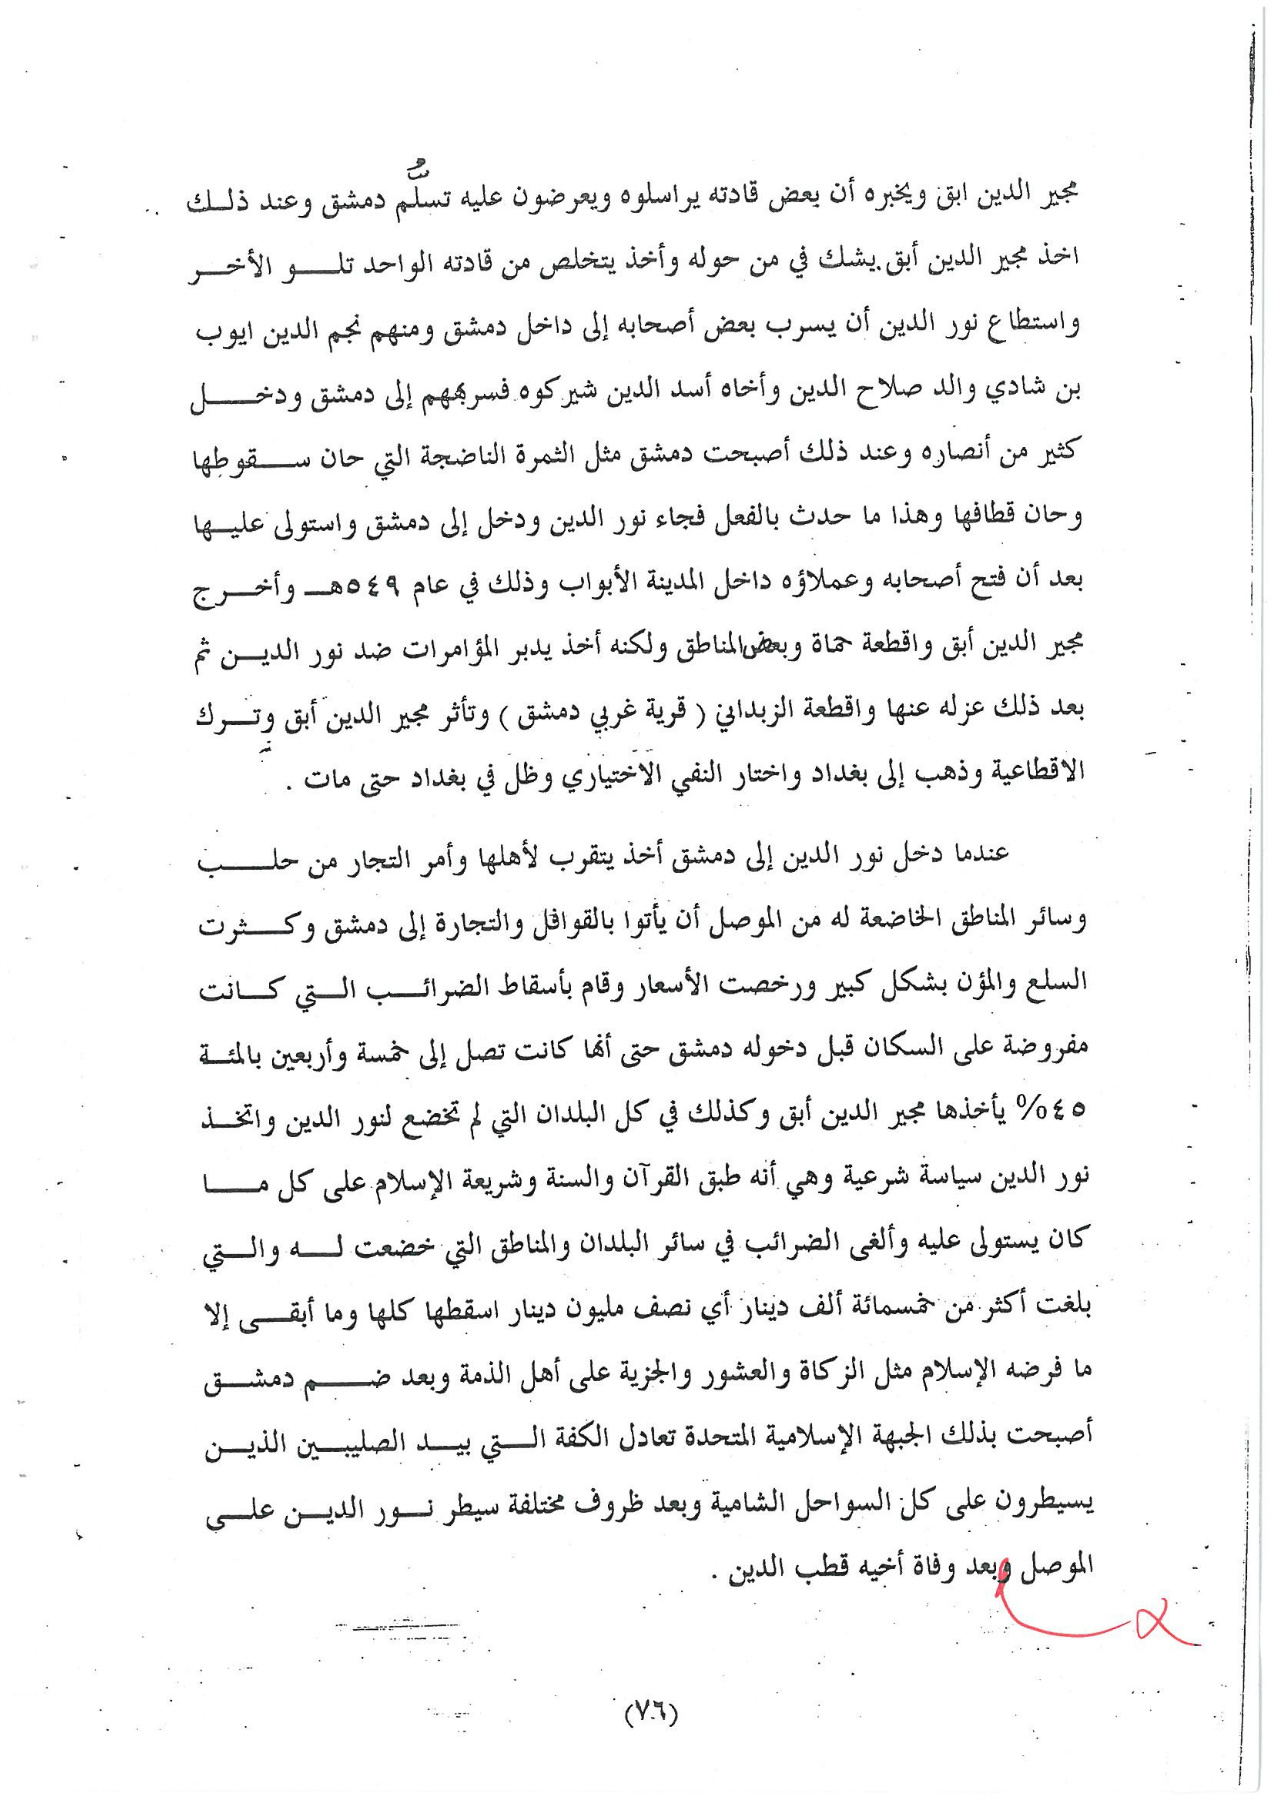 مجير الدين ابق ويخبره أن بعض قادته يراسلوه ويعرضون عليه تسلُّم دمشق وعند ذلك
اخذ مجير الدين أبق يشك في من حوله وأخذ يتخلص من قادته الواحد تلو الأخر
واستطاع نور الدين أن يسرب بعض أصحابه إلى داخل دمشق ومنهم نجم الدين ايوب
بن شادي والد صلاح الدين وأخاه أسد الدين شيركوه فسربهم إلى دمشق ودخل
كثير من أنصاره وعند ذلك أصبحت دمشق مثل الثمرة الناضجة التي حان سقوطها
وحان قطافها وهذا ما حدث بالفعل فجاء نور الدين ودخل إلى دمشق واستولى عليها
بعد أن فتح أصحابه وعملاؤه داخل المدينة الأبواب وذلك في عام ٥٤٩هـ وأخرج
مجير الدين أبق واقطعة حماة وبعض المناطق ولكنه أخذ يدبر المؤامرات ضد نور الدين ثم
بعد ذلك عزله عنها واقطعة الزبداني ( قرية غربي دمشق ) وتأثر مجير الدين أبق وترك
الاقطاعية وذهب إلى بغداد واختار النفي الاختياري وظل في بغداد حتى مات .
عندما دخل نور الدين إلى دمشق أخذ يتقرب لأهلها وأمر التجار من حلب
وسائر المناطق الخاضعة له من الموصل أن يأتوا بالقوافل والتجارة إلى دمشق وكثرت
السلع والمؤن بشكل كبير ورخصت الأسعار وقام بأسقاط الضرائب التي كانت
مفروضة على السكان قبل دخوله دمشق حتى أنها كانت تصل إلى خمسة وأربعين بالمئة
٤٥% يأخذها مجير الدين أبق وكذلك في كل البلدان التي لم تخضع لنور الدين واتخذ
نور الدين سياسة شرعية وهي أنه طبق القرآن والسنة وشريعة الإسلام على كل ما
كان يستولى عليه وألغى الضرائب في سائر البلدان والمناطق التي خضعت له والتي
بلغت أكثر من خمسمائة ألف دينار أي نصف مليون دينار اسقطها كلها وما أبقى إلا
ما فرضه الإسلام مثل الزكاة والعشور والجزية على أهل الذمة وبعد ضم دمشق
أصبحت بذلك الجبهة الإسلامية المتحدة تعادل الكفة التي بيد الصليبين الذين
يسيطرون على كل السواحل الشامية وبعد ظروف مختلفة سيطر نور الدين على
الموصل وبعد وفاة أخيه قطب الدين .
(٧٦)